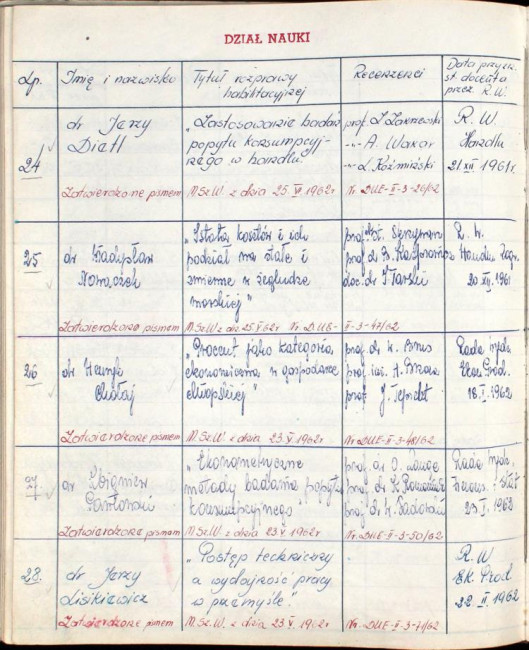 DZIAŁ NAUKI
Lp. Imię i nazwisko Tytuł rozprawy habilitacyjnej Recenzenci Data przyzn. st. docenta przez R.W.
24 dr Jerzy Dietl „Zastosowanie badań popytu konsumpcyjnego w handlu" prof. Zakrzewski
-"- A. Wakar
-"- L. Koźmiński
R.W. Handlu 21 XII 1961r.
Zatwierdzone pismem M.Sz.W. z dnia 25.IV.1962r Nr. DUE-II-3-26/62
25 dr Władysław Nowaczek „Istota kosztów i ich podział na stałe i zmienne w żegludze morskiej"
prof. dr
doc. dr I. Tarski
R.W. Handlu Zagr. 20 XII 1961
Zatwierdzone pismem M.Sz.W z dn. 25.V.62r Nr. DUE-II-3-47/62
26 dr „Procent jako kategoria ekonomiczna w gospodarce chłopskiej"
prof. dr W. Brus
prof.
prof. J. Tepicht
Rada Wydz. Ekon. Prod. 18.I.1962
Zatwierdzone pismem M.Sz.W. z dnia 23.V.1962r Nr. DUE-II-3-48/62
27 dr Zbigniew Pawłowski „Ekonometryczne metody badania popytu konsumpcyjnego"
prof. dr O. Lange
prof. dr K. Romaniuk
prof. dr W. Sadowski
Rada Wydz. Finans. i Stat.
Zatwierdzone pismem M.Sz.W. z dnia 23.V.1962r Nr. DUE-II-3-50/62
28. dr Jerzy Lisikiewicz „Postęp techniczny a wydajność pracy w przemyśle."
R.W. Ek. Prod. 22.II.1962
Zatwierdzone pismem M.Sz.W. z dnia 23.V.1962r Nr. DUE-II-3-71/62